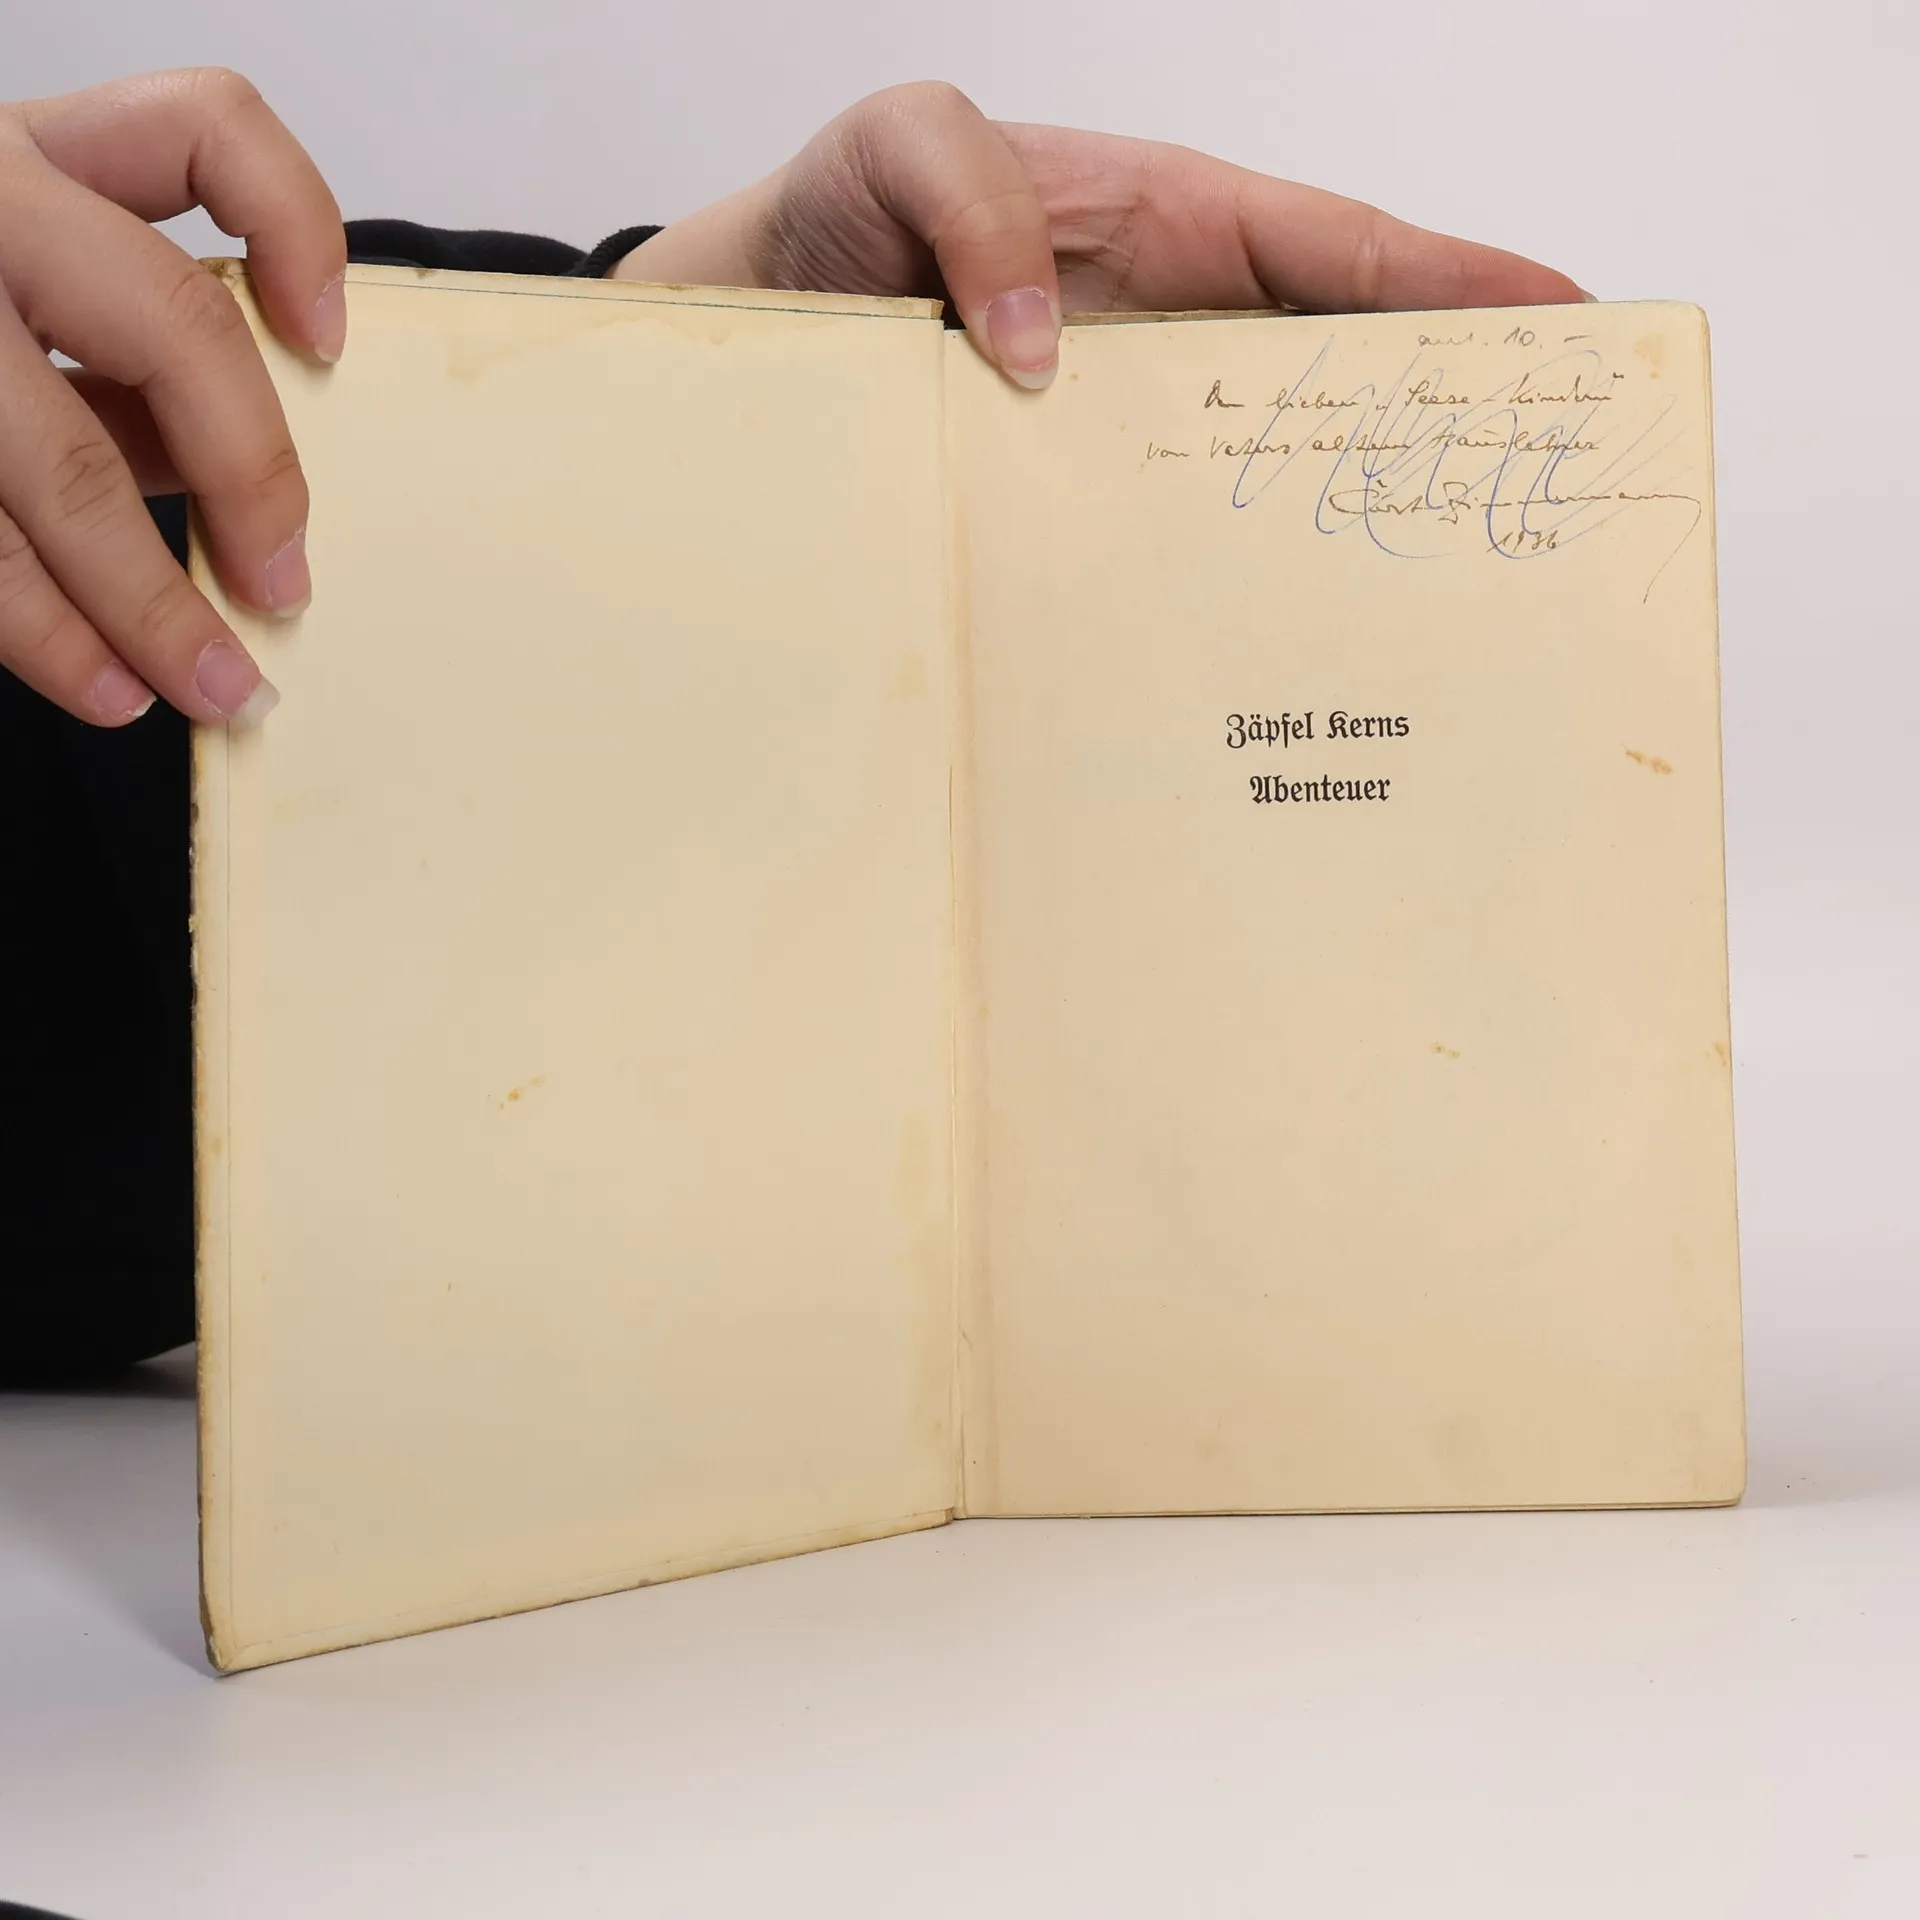 ant. 10. –
Den lieben „Seese-Kindern"
von Vaters altem Hauslehrer
Curt Zimmermann
1936
Zäpfel Kerns
Abenteuer